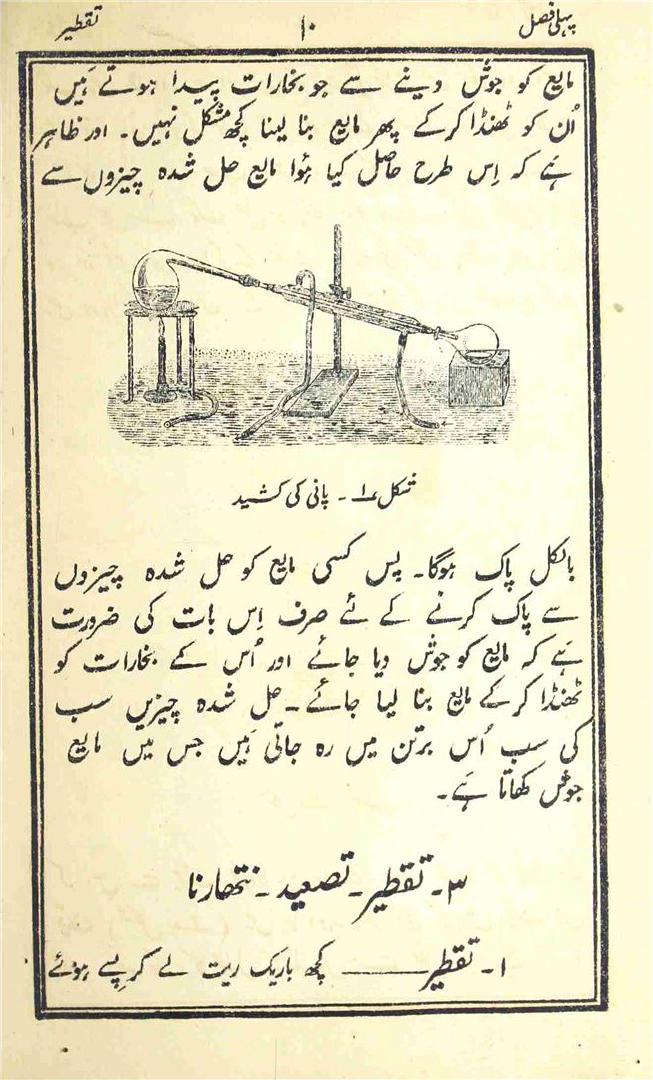 پہلی فصل ۱۰ تقطیر
مایع کو جوش دینے سے جو بخارات پیدا ہوتے ہَیں
اُن کو ٹھنڈا کرکے پھر مایع بنا لینا کچھ مشکل نہیں۔ اور ظاہر
ہَے کہ اِس طرح حاصل کیا ہُوا مایع حل شدہ چیزوں سے
شکل ۱ـ پانی کی کشید
بالکل پاک ہوگا۔ پس کسی مایع کو حل شدہ چیزوں
سے پاک کرنے کے لئے صرف اِس بات کی ضرورت
ہَے کہ مایع کو جوش دیا جائے اور اُس کے بخارات کو
ٹھنڈا کرکے مایع بنا لیا جائے۔ حل شدہ چیزیں سب
کی سب اُس برتن میں رہ جاتی ہَیں جس میں مایع
جوش کھاتا ہَے۔
۳۔ تقطیر۔ تصعید۔ نتھارنا
۱۔ تقطیر ——— کچھ باریک ریت لے کر پِسے ہوئے